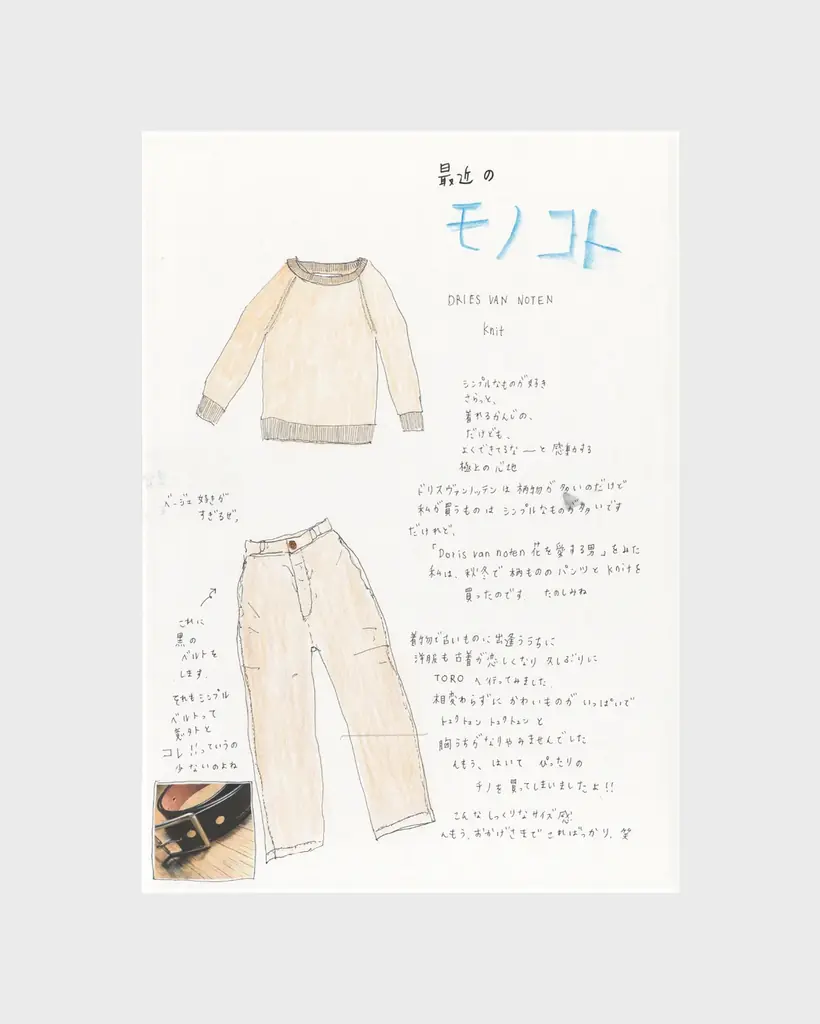 最近の
モノコト
DRIES VAN NOTEN
knit
シンプルなものが好き
さらっと、
着れるかんじの、
だけども、
よくできてるなーと感動する
極上の心地
ドリスヴァンノッテンは柄物が多いのだけど
私が買うものはシンプルなものが多いです
だけれど、
「Doris van noten 花を愛する男」をみた
私は、秋冬で柄もののパンツとknitを
買ったのです たのしみね
ベージュ好きが
すぎるぜ。
これに
黒の
ベルトを
します。
それもシンプル
ベルトって
意外と
コレ!!っていうの
少ないのよね
着物で古いものに出逢ううちに
洋服も古着が恋しくなり久しぶりに
TOROへ行ってみました
相変わらずにかわいものがいっぱいで
トゥクトゥントゥクトゥンと
胸うちがなりやみませんでした
んもう、はいて ぴったりの
チノを買ってしまいましたよ!!
こんなしっくりなサイズ感
んもう、おかげさまでこればっかり。笑